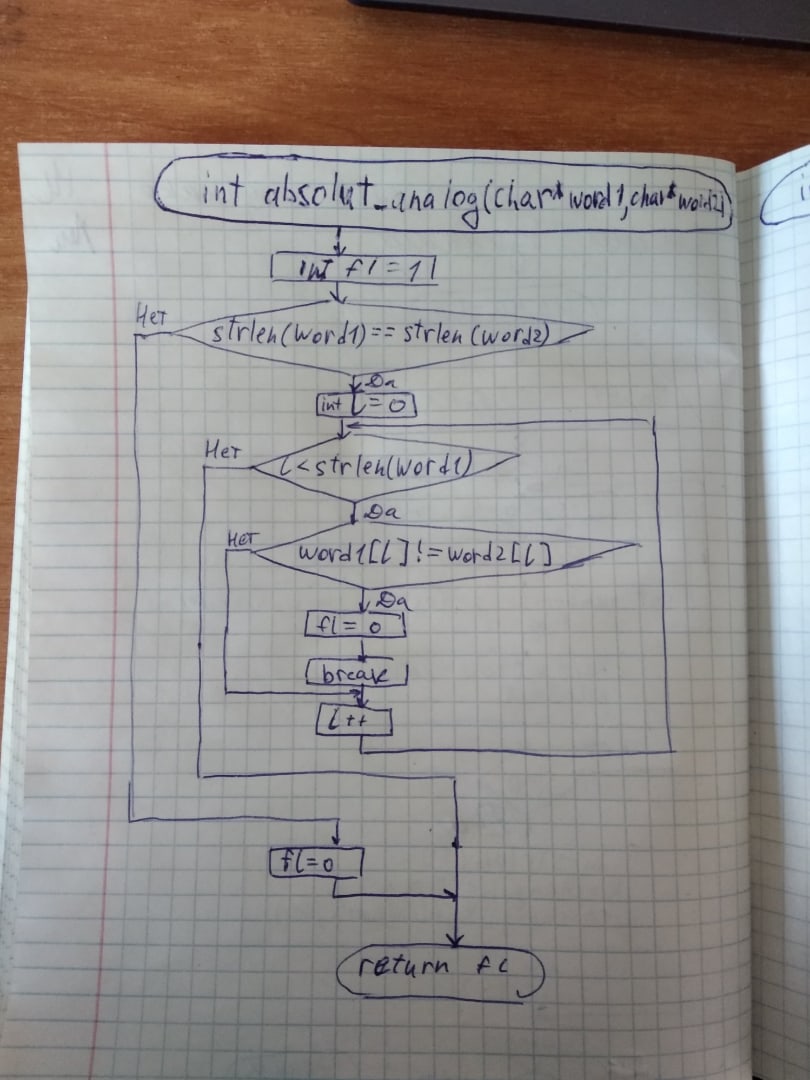 int absolut_analog(char* word1,char* word2)
int fl=1
Нет
strlen(word1)==strlen(word2)
Да
int i=0
Нет
i<strlen(word1)
Да
нет
word1[i]!=word2[i]
Да
fl=0
break
i++
fl=0
return fl